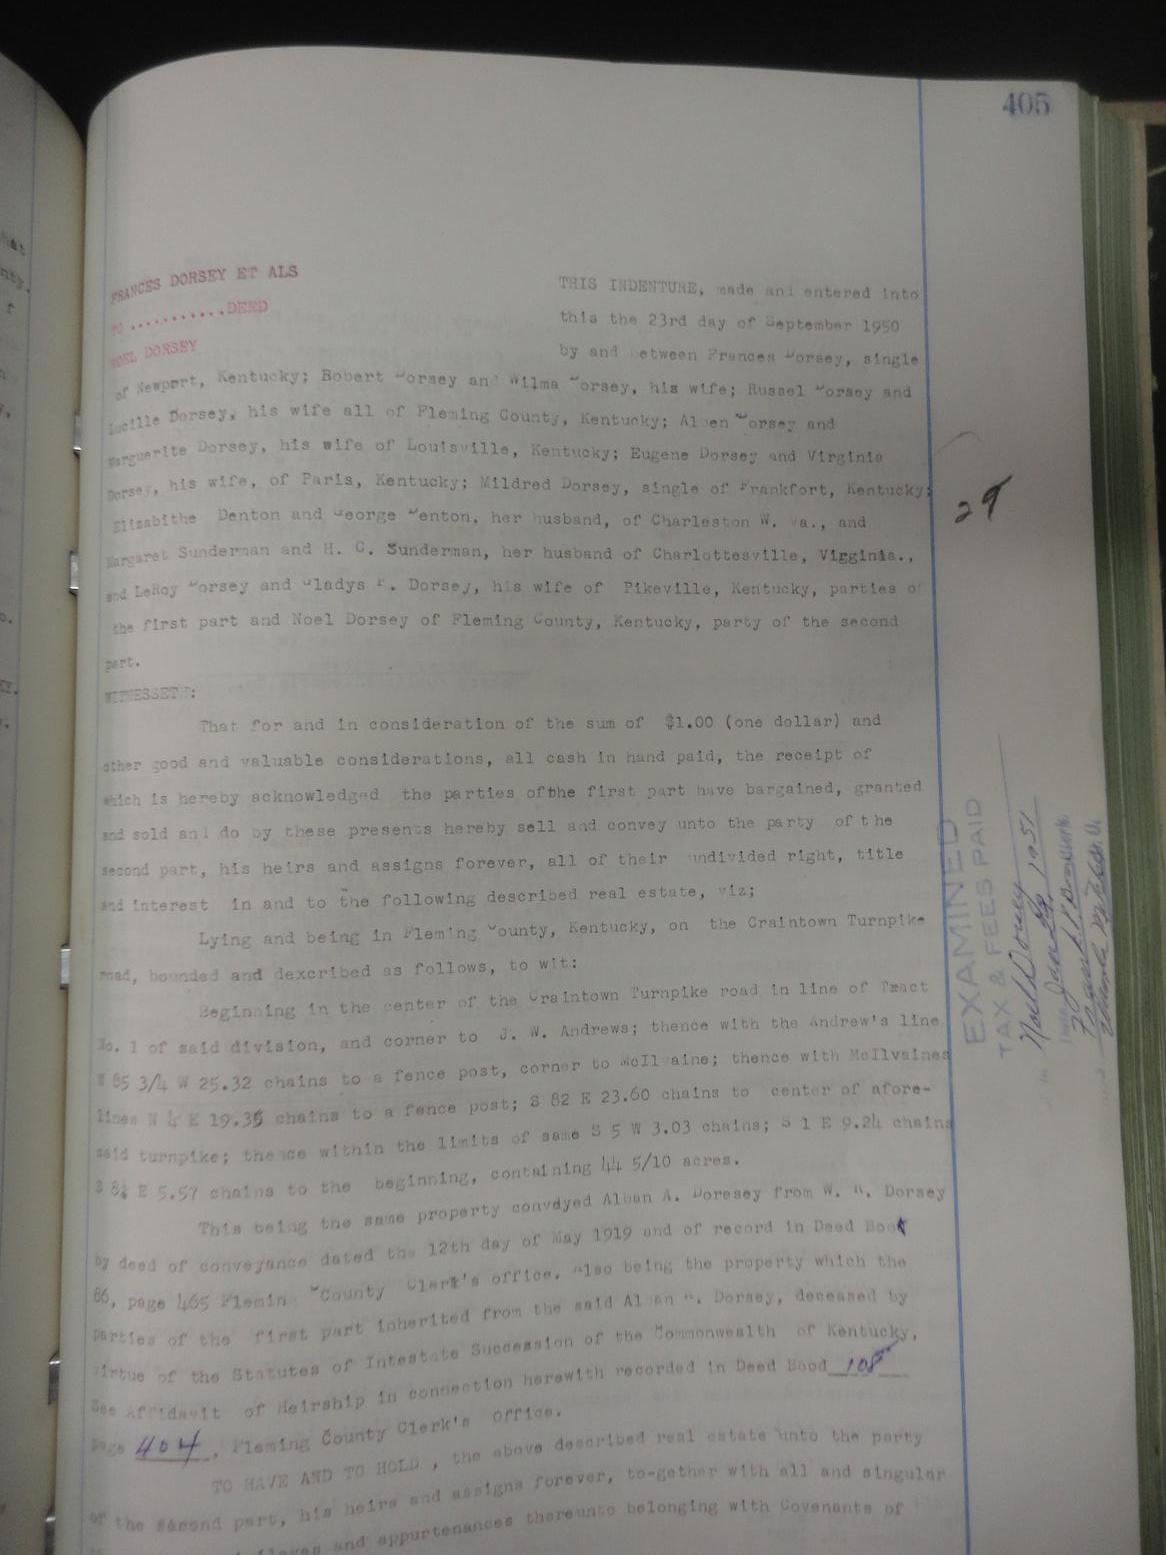 405
FRANCES DORSEY ET ALS
TO ...........DEED
NOEL DORSEY
THIS INDENTURE, made and entered into
this the 23rd day of September 1950
by and between Frances Dorsey, single
of Newport, Kentucky; Robert Dorsey and Wilma Dorsey, his wife; Russel Dorsey and
Lucille Dorsey, his wife all of Fleming County, Kentucky; Alben Dorsey and
Marguerite Dorsey, his wife of Louisville, Kentucky; Eugene Dorsey and Virginia
Dorsey, his wife, of Paris, Kentucky; Mildred Dorsey, single of Frankfort, Kentucky;
Elizabithe Denton and George Denton, her husband, of Charleston W. Va., and
Margaret Sunderman and H. C. Sunderman, her husband of Charlottesville, Virginia.,
and LeRoy Dorsey and Gladys F. Dorsey, his wife of Pikeville, Kentucky, parties of
the first part and Noel Dorsey of Fleming County, Kentucky, party of the second
part.
WITNESSETH:
That for and in consideration of the sum of $1.00 (one dollar) and
other good and valuable considerations, all cash in hand paid, the receipt of
which is hereby acknowledged the parties ofthe first part have bargained, granted
and sold and do by these presents hereby sell and convey unto the party of the
second part, his heirs and assigns forever, all of their undivided right, title
and interest in and to the following described real estate, viz;
Lying and being in Fleming County, Kentucky, on the Craintown Turnpike
road, bounded and dexcribed as follows, to wit:
Beginning in the center of the Craintown Turnpike road in line of Tract
No. 1 of said division, and corner to J. W. Andrews; thence with the Andrew's line
N 85 3/4 W 25.32 chains to a fence post, corner to McIlvaine; thence with McIlvaines
lines N 4 E 19.36 chains to a fence post; S 82 E 23.60 chains to center of afore-
said turnpike; thence within the limits of same S 5 W 3.03 chains; S 1 E 9.24 chains
S 8½ E 5.57 chains to the beginning, containing 44 5/10 acres.
This being the same property convdyed Alban A. Doresey from W. R. Dorsey
by deed of conveyance dated the 12th day of May 1919 and of record in Deed Book
86, page 465 Flemin County Clerk's office. Also being the property which the
parties of the first part inherited from the said Alban A. Dorsey, deceased by
virtue of the Statutes of Intestate Succession of the Commonwealth of Kentucky,
See Affidavit of Heirship in connection herewith recorded in Deed Bood 108
page 404, Fleming County Clerk's Office.
TO HAVE AND TO HOLD , the above described real estate unto the party
of the second part, his heirs and assigns forever, to-gether with all and singular
and appurtenances thereunto belonging with Covenants of
29
EXAMINED
TAX & FEES PAID
Noel Dorsey
Jan 1951